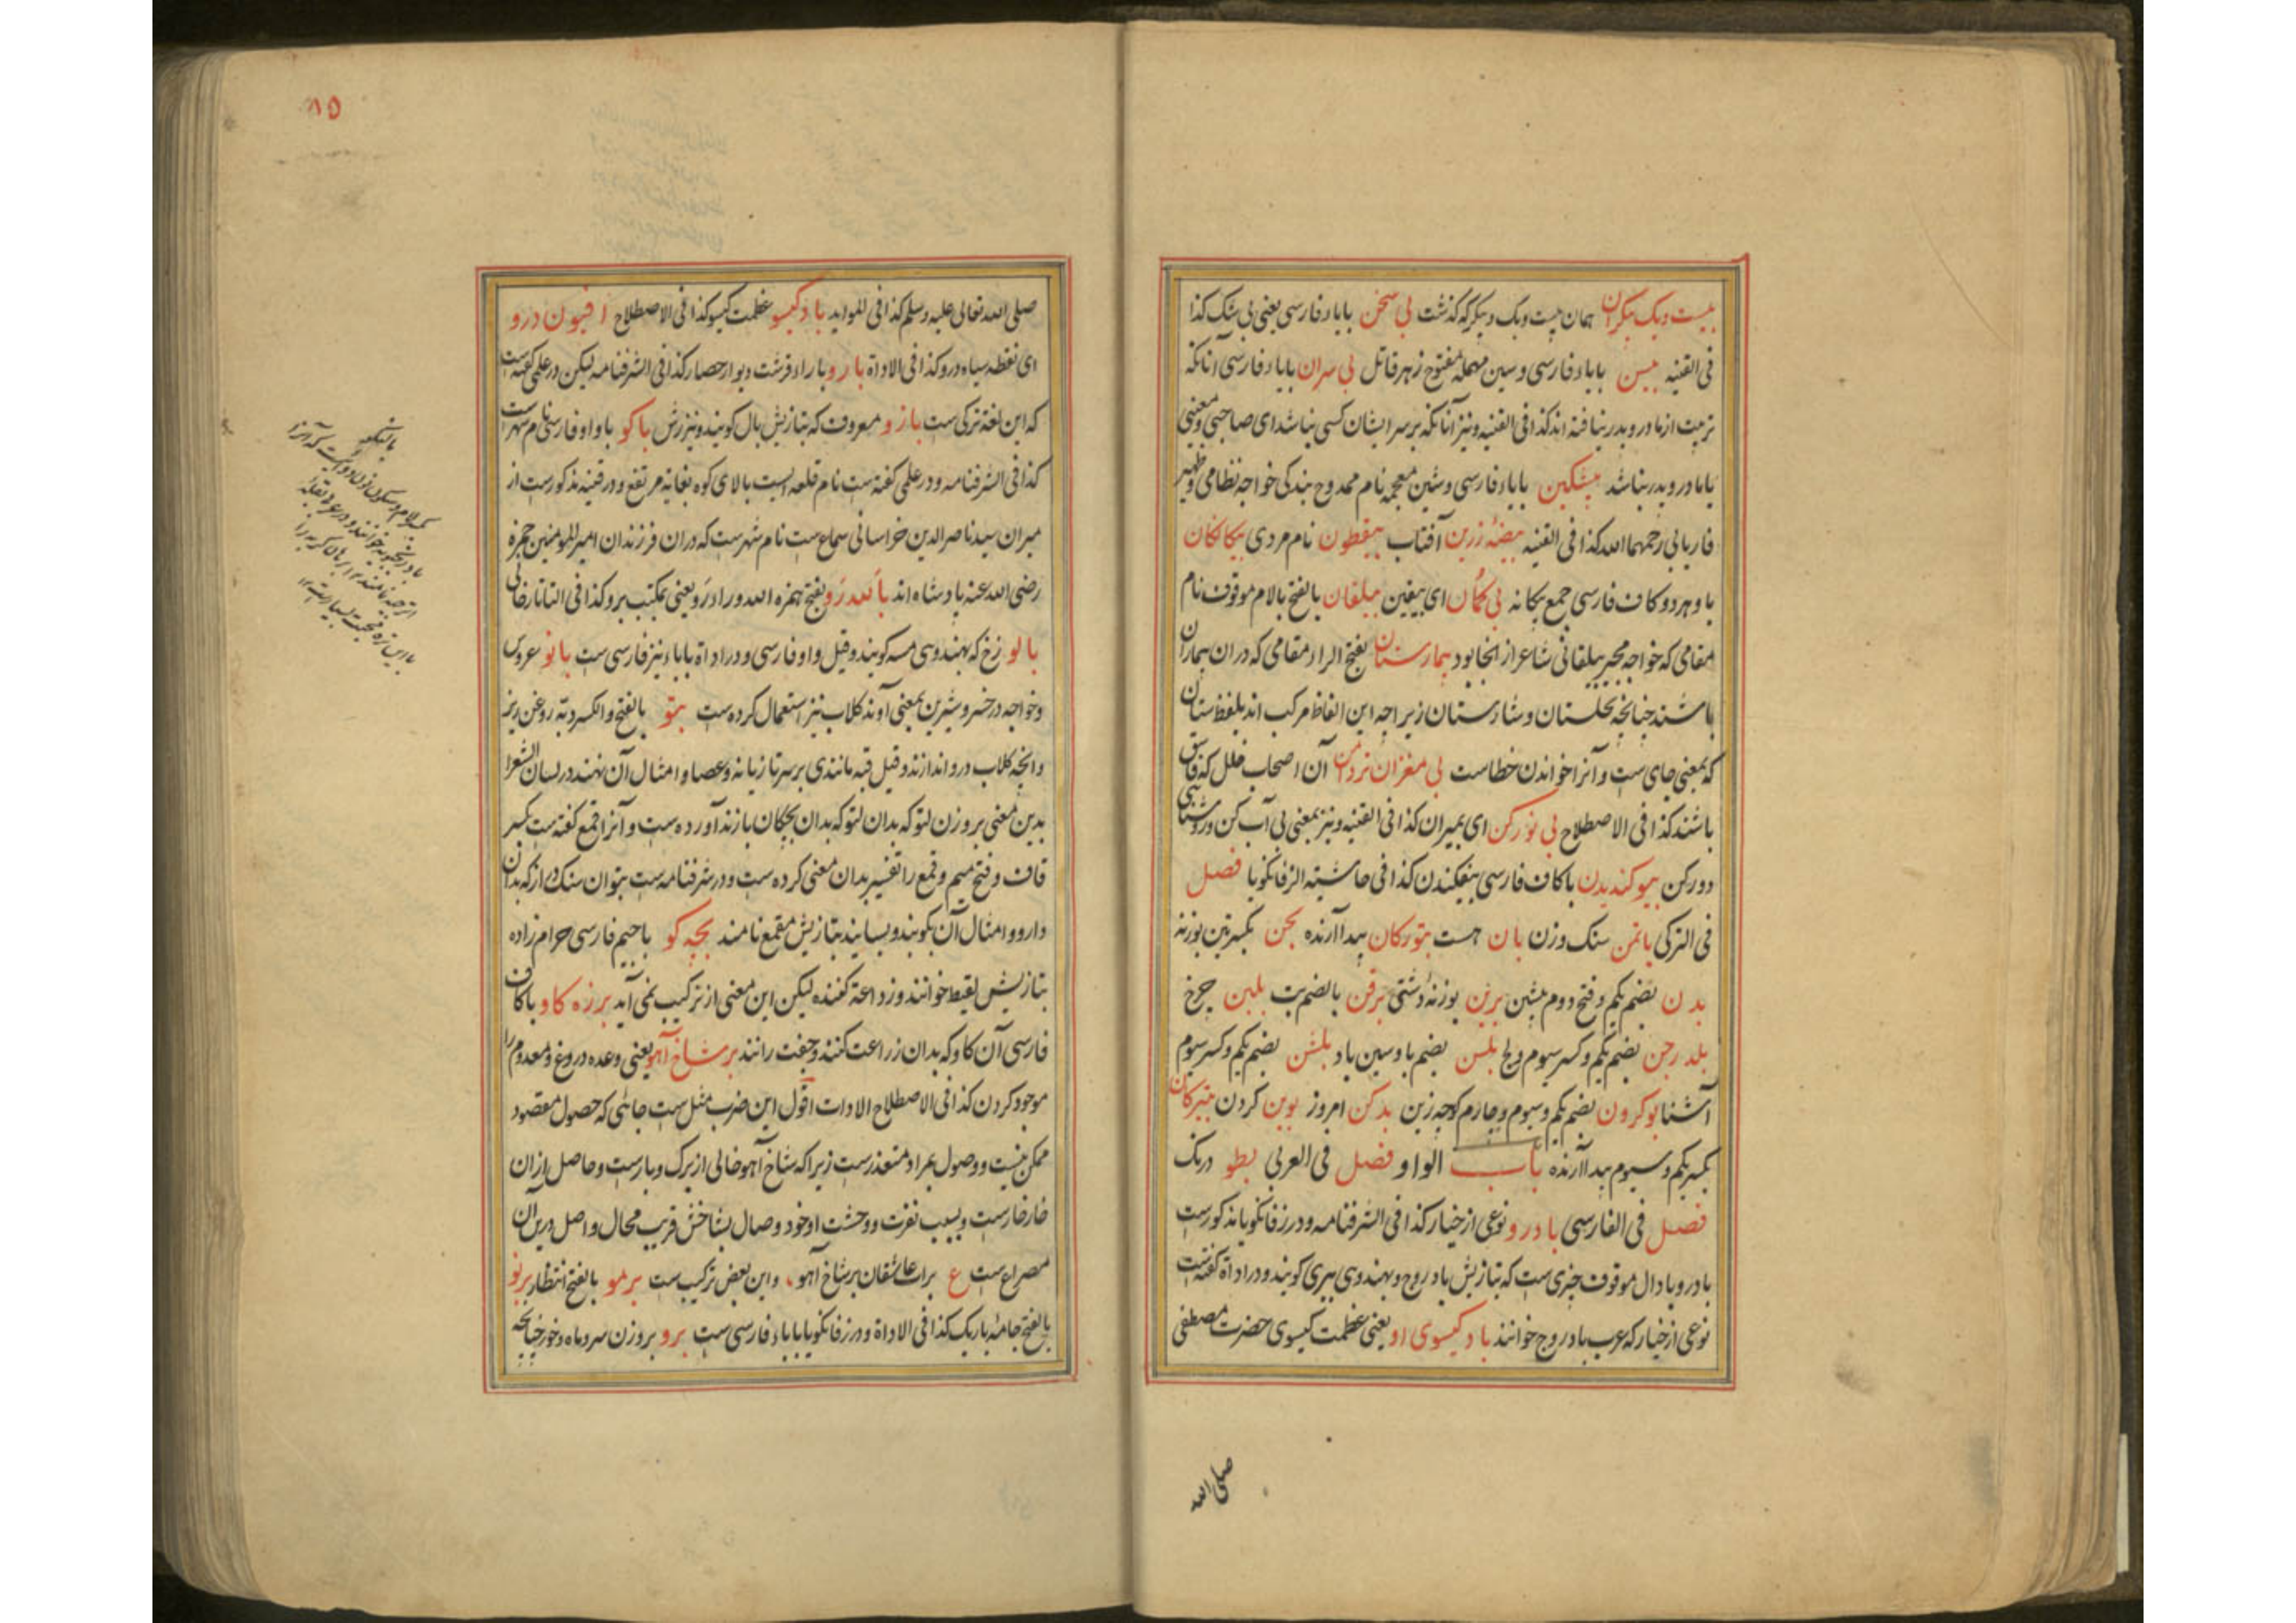 بیست و یک پیکران همان بیست و یک پیکر که گذشت بی سخن بابا فارسی یعنی بی شک کذا
فی القنیه بیسن بابا فارسی و سین مهمله مفتوح زهر قاتل بی سران بابا فارسی آنانکه
تربیت از مادر و پدر نیافته اند کذا فی القنیه و نیز آنانکه بر سر ایشان کسی نباشد ای صاحبی و معنی
یا مادر و پدر نباشد بیشکین بابا فارسی و شین معجمه نام ممدوح بندکی خواجه نظامی و ظهیر
فاریابی رحمهما الله کذا فی القنیه بیضهٔ زرین آفتاب بیقطون نام مردی بیکانکان
با و هر دو کاف فارسی جمع بیکانه بی گمان ای بیقین بیلقان بالفتح بالام موقوف نام
مقامی که خواجه مجیر بیلقانی شاعر از آنجا بود بیمارستان بفتح الراء مقامی که دران بیماران
باشند چنانچه نخلستان و شارستان زیراچه این الفاظ مرکب اند بلفظ ستان
که بمعنی جای ست و آنرا خواندن خطاست بی مغزان تردامن آن اصحاب خلل که فاسق
باشند کذا فی الاصطلاح بی نور کن ای بمیران کذا فی القنیه و نیز بمعنی بی آب کن و روشنائی
دور کن بیوکندیدن با کاف فارسی بیفکندن کذا فی حاشیته الزفانکویا فصل
فی الترکی باتمن سنک وزن بان هست بتورکان پیدا آرنده بجن بکسرتین بوزنه
بدن بضم یکم و فتح دوم پیشین برین بوزنهٔ دشتی برقن بالضم بت بلبن چرخ
بلدرجن بضم یکم و کسر سیوم ولج بلسن بضم با و سین یاد بلشن بضم یکم و کسر سیوم
آشنا بوکرون بضم یکم و سیوم و چارم کوچه زین بدکن امروز بوین کردن بیترکان
بکسر یکم و سیوم پیدا آرنده باب الواو فصل فی العربی بطو درنک
فصل فی الفارسی بادرو نوعی از خیار کذا فی الشرفنامه و در زفانکویا مذکورست
بادرو با دال موقوف چیزی ست که بتازیش بادروج و بهندوی ببری کویند و در اداة کفته ست
نوعی از خیار که عرب بادروج خوانند باد کیسوی او یعنی عظمت کیسوی حضرت مصطفی
صلی الله
۸۵
صلی الله تعالی علیه و سلم کذا فی المواید باد کیسو عظمت کیسو کذا فی الاصطلاح افیون درو
ای نقطه سیاه درو کذا فی الاداة بارو با راء قرشت دیوار حصار کذا فی الشرفنامه لیکن در علمی کفته ست
که این لغة ترکی ست بازو معروف که بتازیش بال کویند و نیز زش باکو با واو فارسی نام شهریست
کذا فی الشرفنامه و در علمی کفته ست نام قلعه ایست بالای کوه بغایة مرتفع و در قنیه مذکورست از
میران سید ناصرالدین خراسانی سماع ست نام شهریست که دران فرزندان امیرالمومنین حمزه
رضی الله عنه پادشاه اند بالله رو بفتح همزه الله و راء رو یعنی بمکتب برو کذا فی التاتارخانی
بالو زخ که بهندوی مسه کویند و قیل واو فارسی و در اداة بابا نیز فارسی ست بانو عروس
و خواجه در خسرو شیرین بمعنی آوند کلاب نیز استعمال کرده ست بتو بالفتح و الکسر دبه روغن ریز
و انچه کلاب درو اندازند و قیل قبه مانندی بر سر تازیانه و عصا و امثال آن نهند در لسان الشعرا
بدین معنی بر وزن لتو که بدان لتو که بدان بچکان بازند آورده ست و آنرا قمع کفته ست بکسر
قاف و فتح میم و قمع را تفسیر بدان معنی کرده ست و در شرفنامه ست بتوان سنک دراز که بدان
دارو و امثال آن بکوبند و بسایند بتازیش مقمع نامند بچه کو با جیم فارسی حرام زاده
بتازیش لقیط خوانند و زراعة کننده لیکن این معنی از ترکیب نمی آید برزه کاو با کاف
فارسی آن کاو که بدان زراعت کنند و جفت رانند بر شاخ آهو یعنی وعده دروغ و معدوم را
موجود کردن کذا فی الاصطلاح الادات اقول این ضرب مثل ست جائی که حصول مقصود
ممکن نیست و وصول بمراد متعذرست زیراکه شاخ آهو خالی از برک و بارست و حاصل ازان
خارخارست و بسبب نفرت و وحشت او خود وصال بشاخش قریب محال و اصل درین آن
مصراع ست ع برات عاشقان بر شاخ آهو، و این بعض ترکیب ست برمو بالفتح انتظار برنو
بالفتح جامهٔ باریک کذا فی الاداة و در زفانکویا بابا فارسی ست برو بر وزن سرو ماه و خور چنانچه